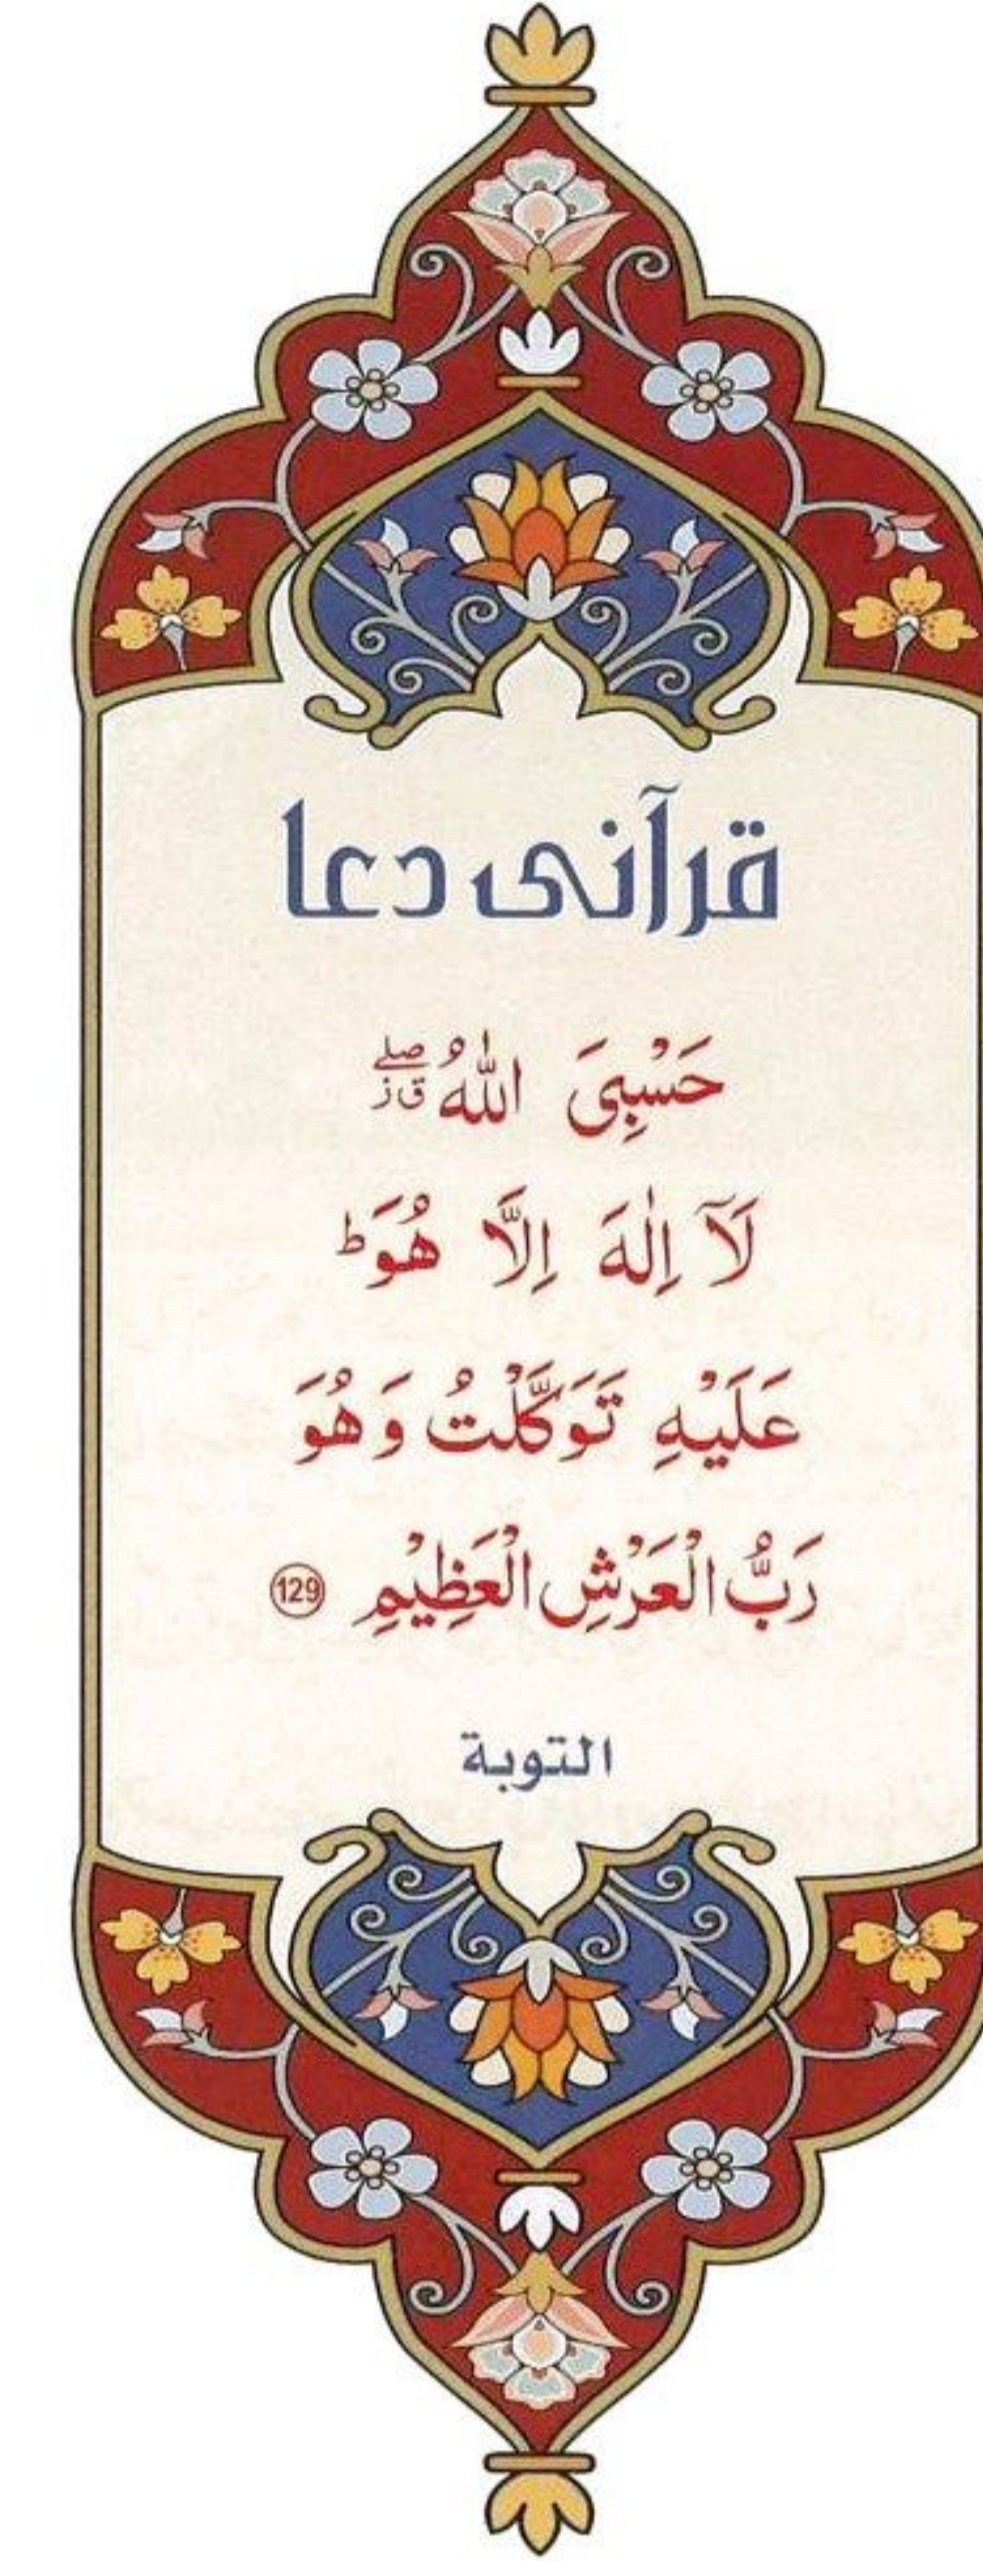 قرآنی دعا
حَسْبِیَ اللّٰهُ ۖ ق ز
لَاۤ اِلٰهَ اِلَّا هُوَ ؕ
عَلَیْهِ تَوَكَّلْتُ وَ هُوَ
رَبُّ الْعَرْشِ الْعَظِیْمِ 129
التوبة